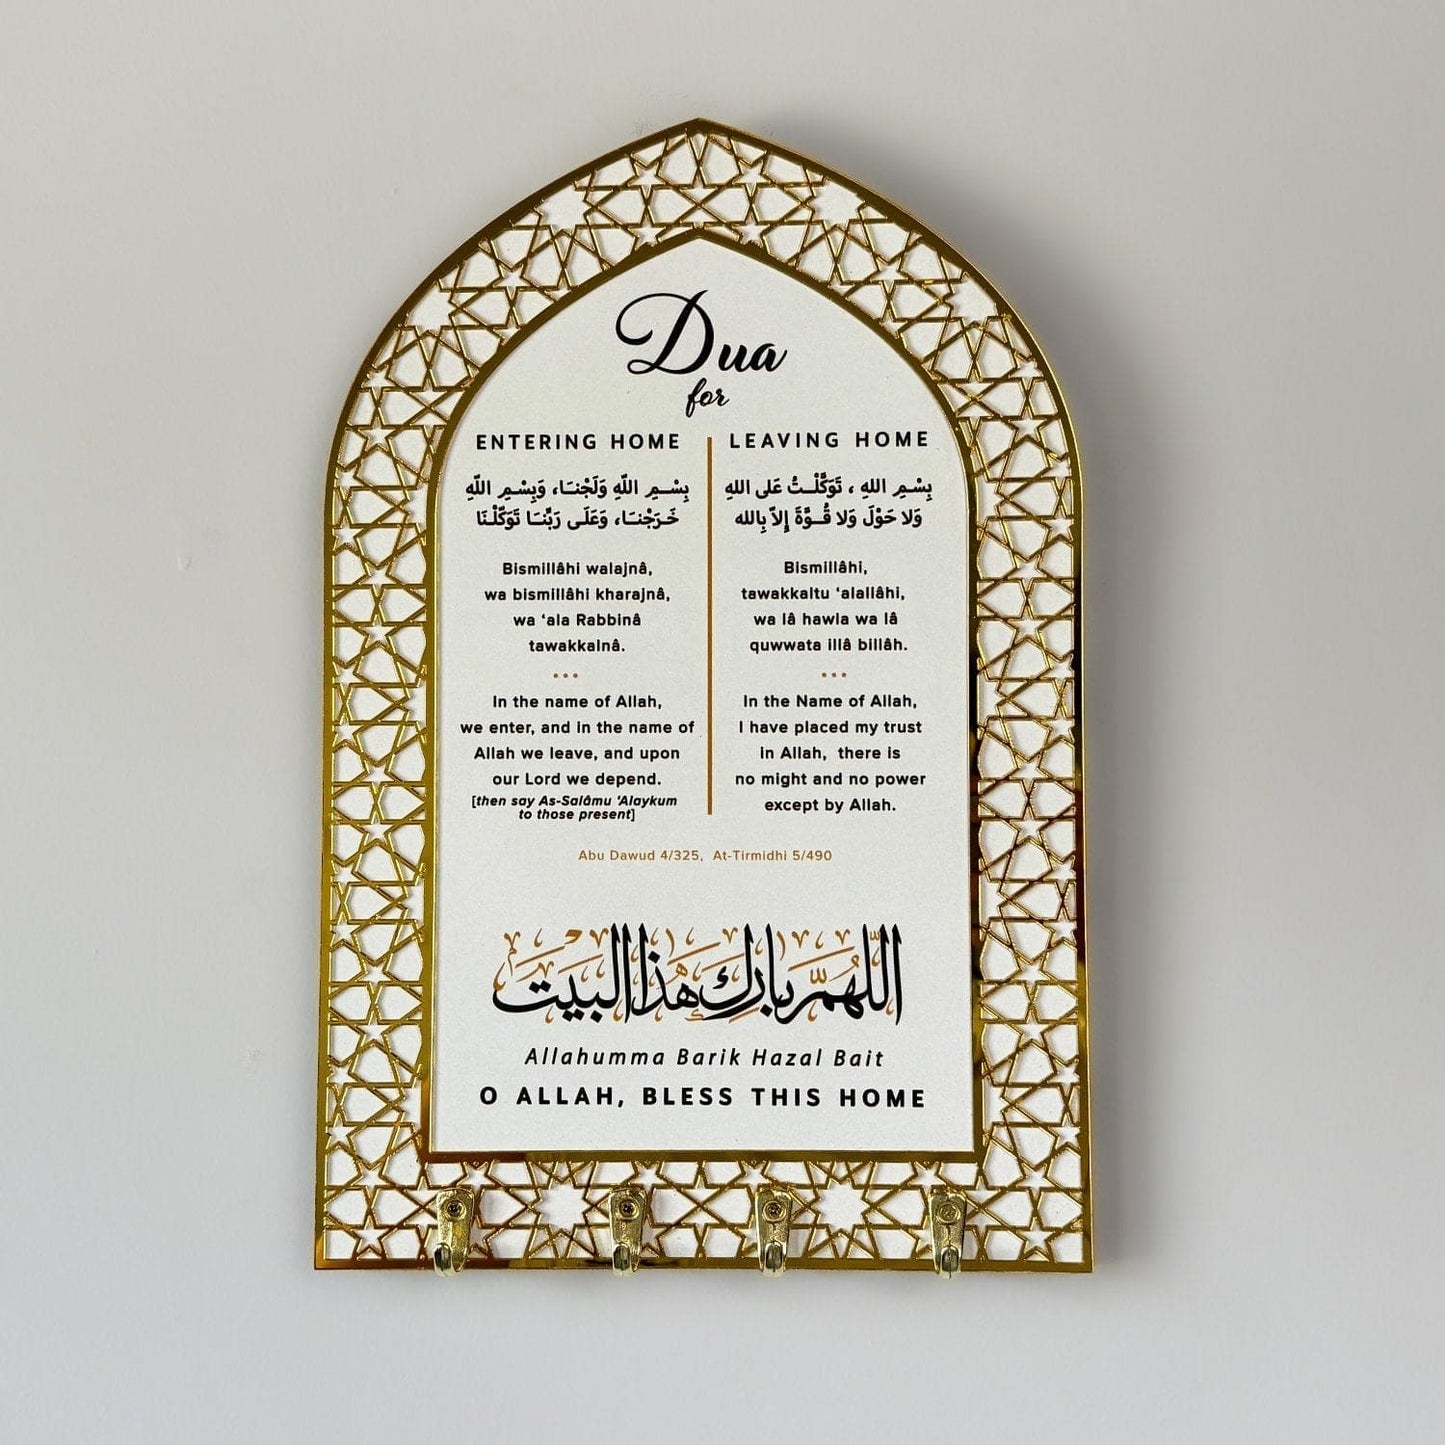 Dua
for
ENTERING HOME
بِسْمِ اللّهِ وَلَجْنَا، وَبِسْمِ اللّهِ
خَرَجْنَا، وَعَلَى رَبِّنَا تَوَكَّلْنَا
Bismillâhi walajnâ,
wa bismillâhi kharajnâ,
wa ‘ala Rabbinâ
tawakkalnâ.
In the name of Allah,
we enter, and in the name of
Allah we leave, and upon
our Lord we depend.
[then say As-Salâmu ‘Alaykum
to those present]
LEAVING HOME
بِسْمِ اللهِ ، تَوَكَّلْتُ عَلى اللهِ
وَلا حَوْلَ وَلا قُوَّةَ إِلاّ بِالله
Bismillâhi,
tawakkaltu ‘alallâhi,
wa lâ hawla wa lâ
quwwata illâ billâh.
In the Name of Allah,
I have placed my trust
in Allah, there is
no might and no power
except by Allah.
Abu Dawud 4/325, At-Tirmidhi 5/490
اللّهُمَّ بَارِك هَذا البَيت
Allahumma Barik Hazal Bait
O ALLAH, BLESS THIS HOME